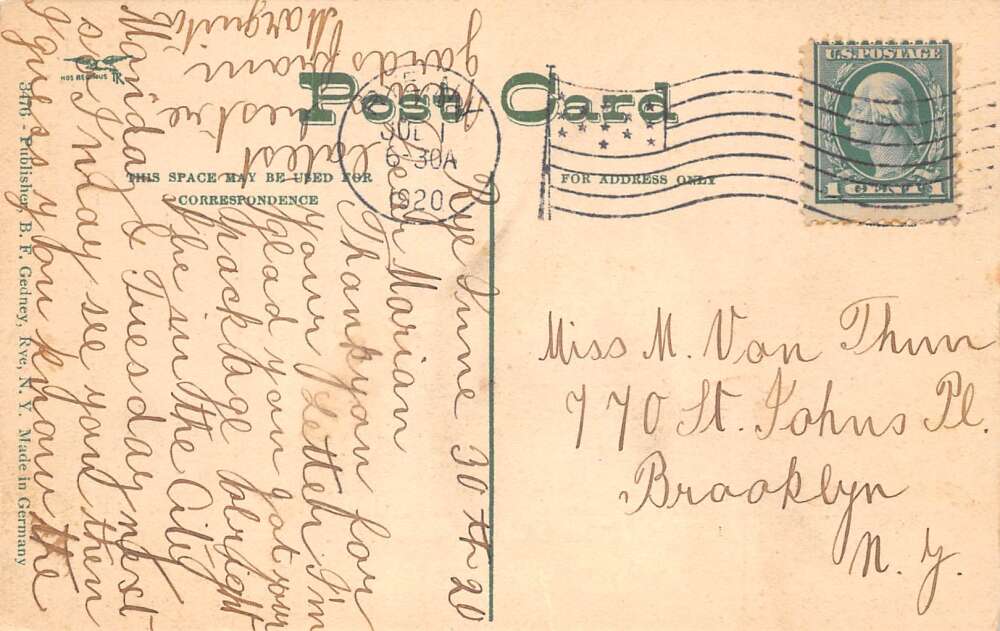 Post Card
THIS SPACE MAY BE USED FOR
CORRESPONDENCE
FOR ADDRESS ONLY
U.S. POSTAGE
1 CENT 1
JUL 1
6-30A
1920
Miss M. Van Thun
770 St. Johns Pl.
Brooklyn
N. Y.
Rye June 30th 20
Marian
Thank you for
your letter. I'm
glad you got your
package allright
I'll be in the City
Monday & Tuesday next
so I may see you then
I guess you know the
latest
Marguite
HOS REGIMUS
3476 - Publisher, B. F. Gedney, Rye, N. Y. Made in Germany